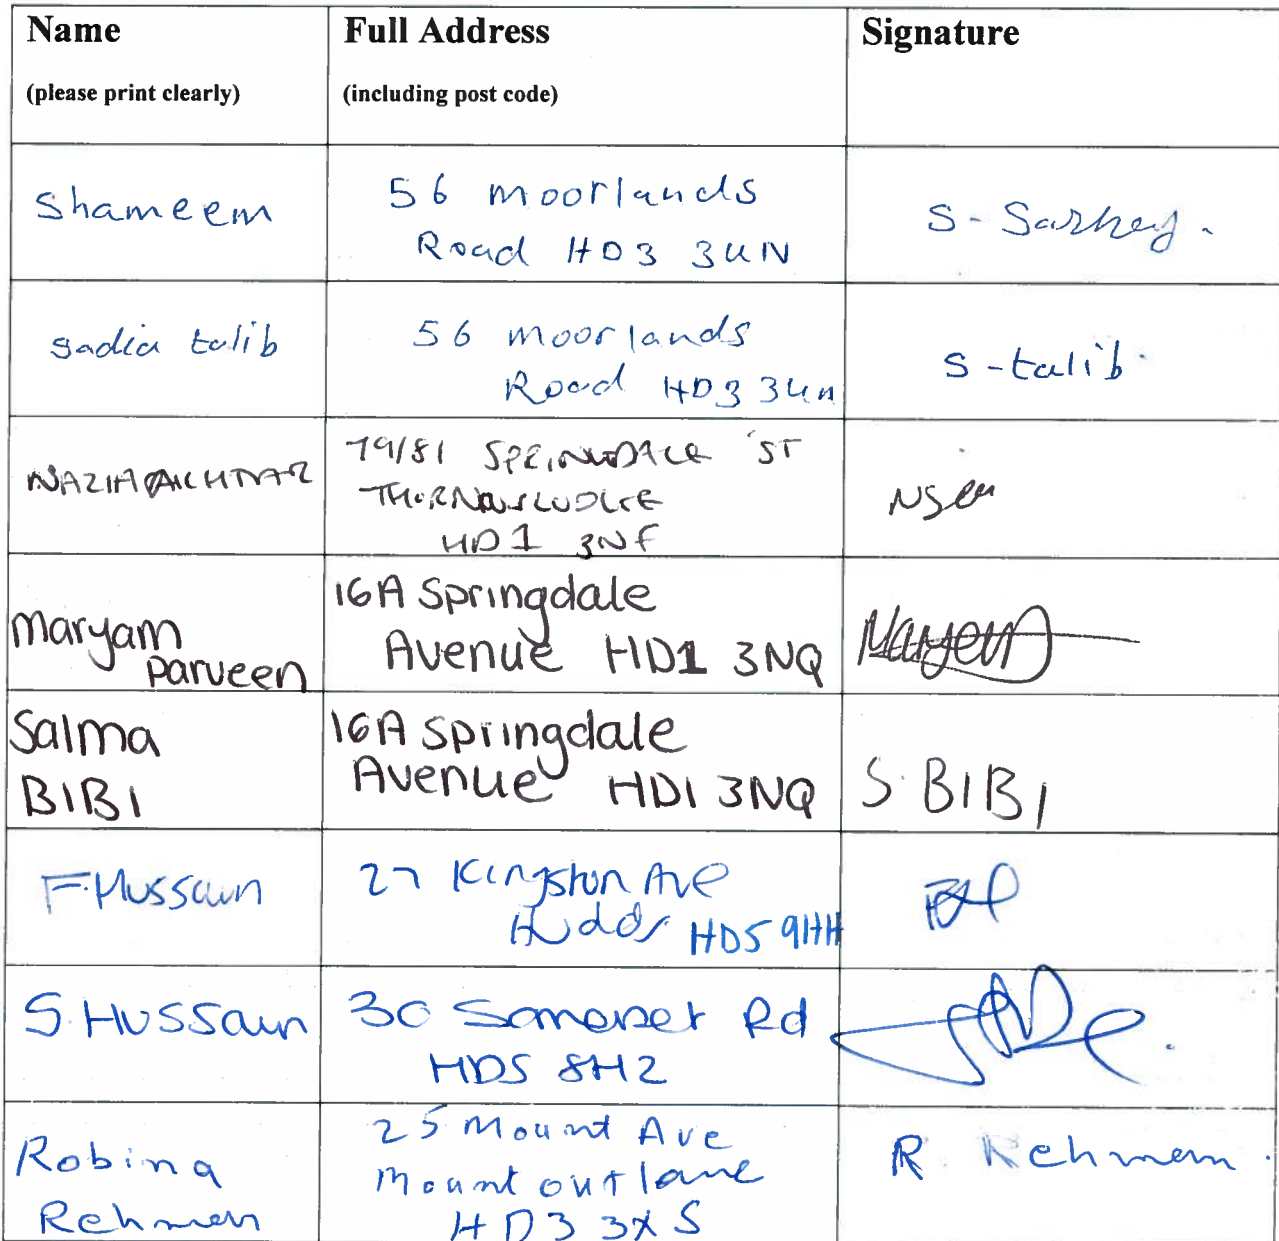 Name Full Address Signature
(please print clearly) (including post code)
Shameem 56 moorlands
Road HD3 3UN S-
sadia talib 56 moorlands
Road HD3 3un S-talib
NAZIA AKHTAR 79/81 SPRINGDALE ST
HD1 3NF
Maryam
Parveen 16A Springdale
Avenue HD1 3NQ Maryam
Salma
BIBI 16A Springdale
Avenue HD1 3NQ S.BIBI
F.Hussain 27 Kingston Ave
Hudds HD5 9HH
S.Hussain 30 Somerset Rd
HD5 8HZ
Robina
Rehman 25 Mount Ave
Mount outlane
HD3 3XS R. Rehman.